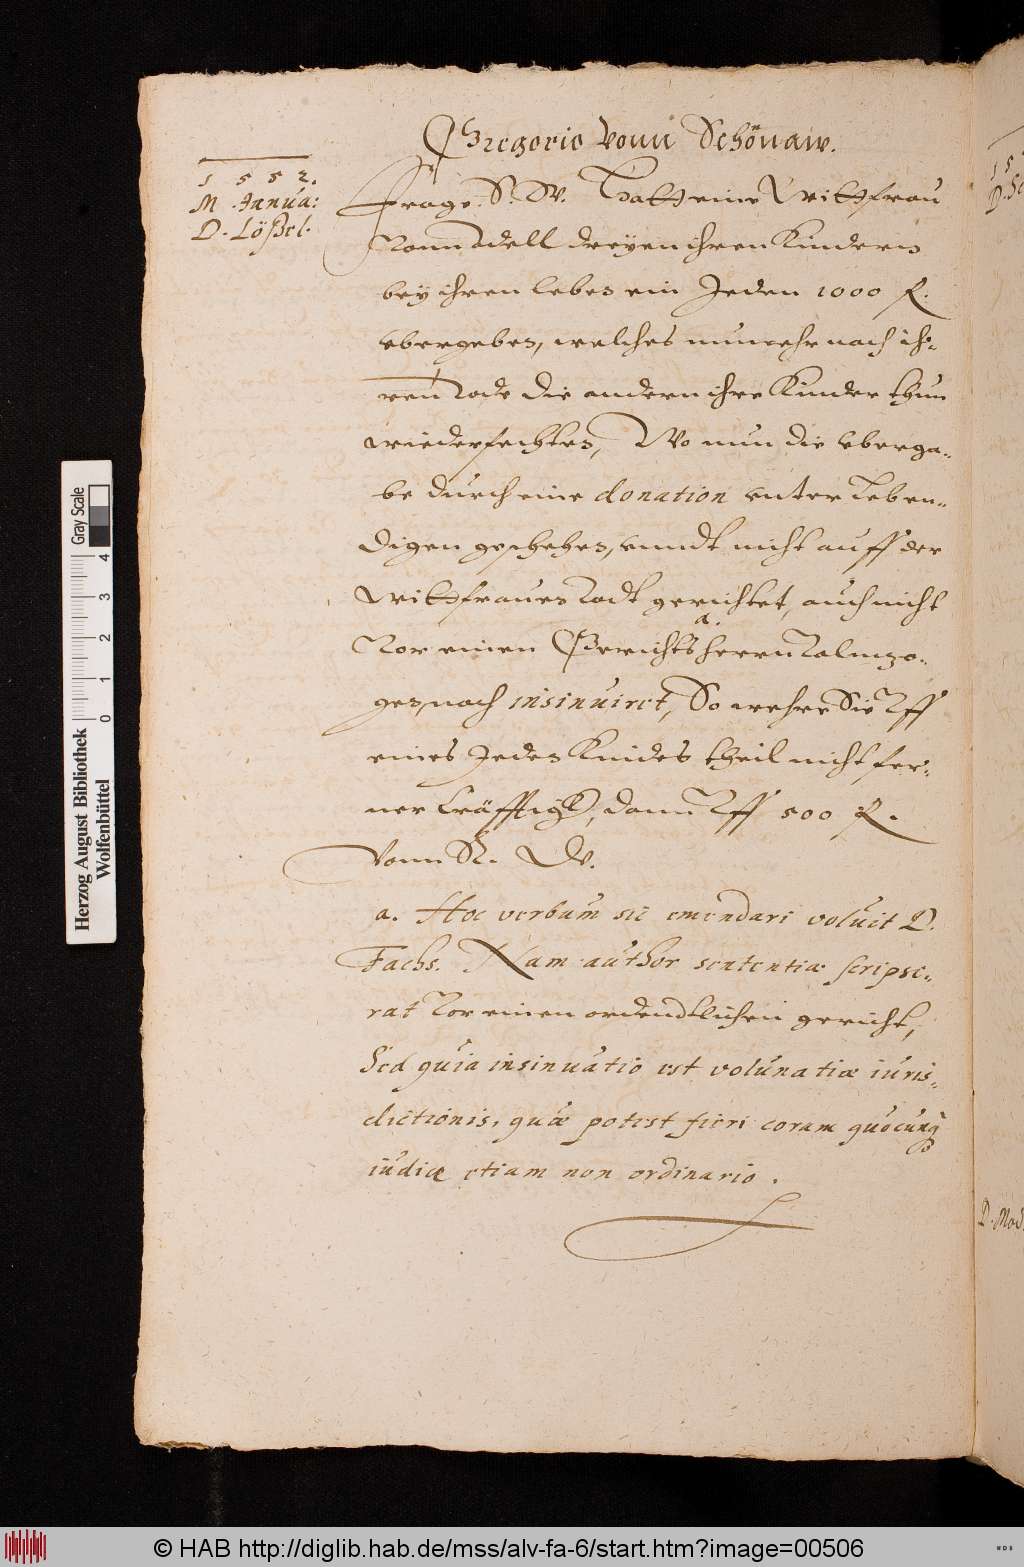 Gregorio vonn Schönaw.
1 5 5 2.
M. Janua:
D. Lößel.
Frage. S. W. Hatt eine Wittfrau
Vonn Adell dreyen ihren Kindern
bey ihren leben ein Jeden 1000 f.
vbergeben, welches nunmehr nach ih-
ren Tode die andern ihre Kinder thun
wiederfechten, Wo nun die vberga-
be durch eine donation vnter Leben-
digen geschehen, vnndt nicht auff der
Wittfrauen Todt gerichtet, auch nicht
a.
Vor einen Gerichts herrn
gen, noch insinuiret, So wehre Sie Vff
eines Jeden Kindes theil nicht fer-
ner kräfftigk, dann Vff 500 f.
Vonn R. W.
a. Hoc verbum sic emendari voluit D.
Fachs. Nam author sententiæ scripse-
rat Vor einen ordendtlichen gericht,
Sed quia insinuatio est volunatiæ iuris-
dictionis, quæ potest fieri coram quocunq
iudice etiam non ordinario.
1 5
D. Mod
Herzog August Bibliothek
Wolfenbüttel
Gray Scale
0 1 2 3 4
© HAB http://diglib.hab.de/mss/alv-fa-6/start.htm?image=00506
WDB